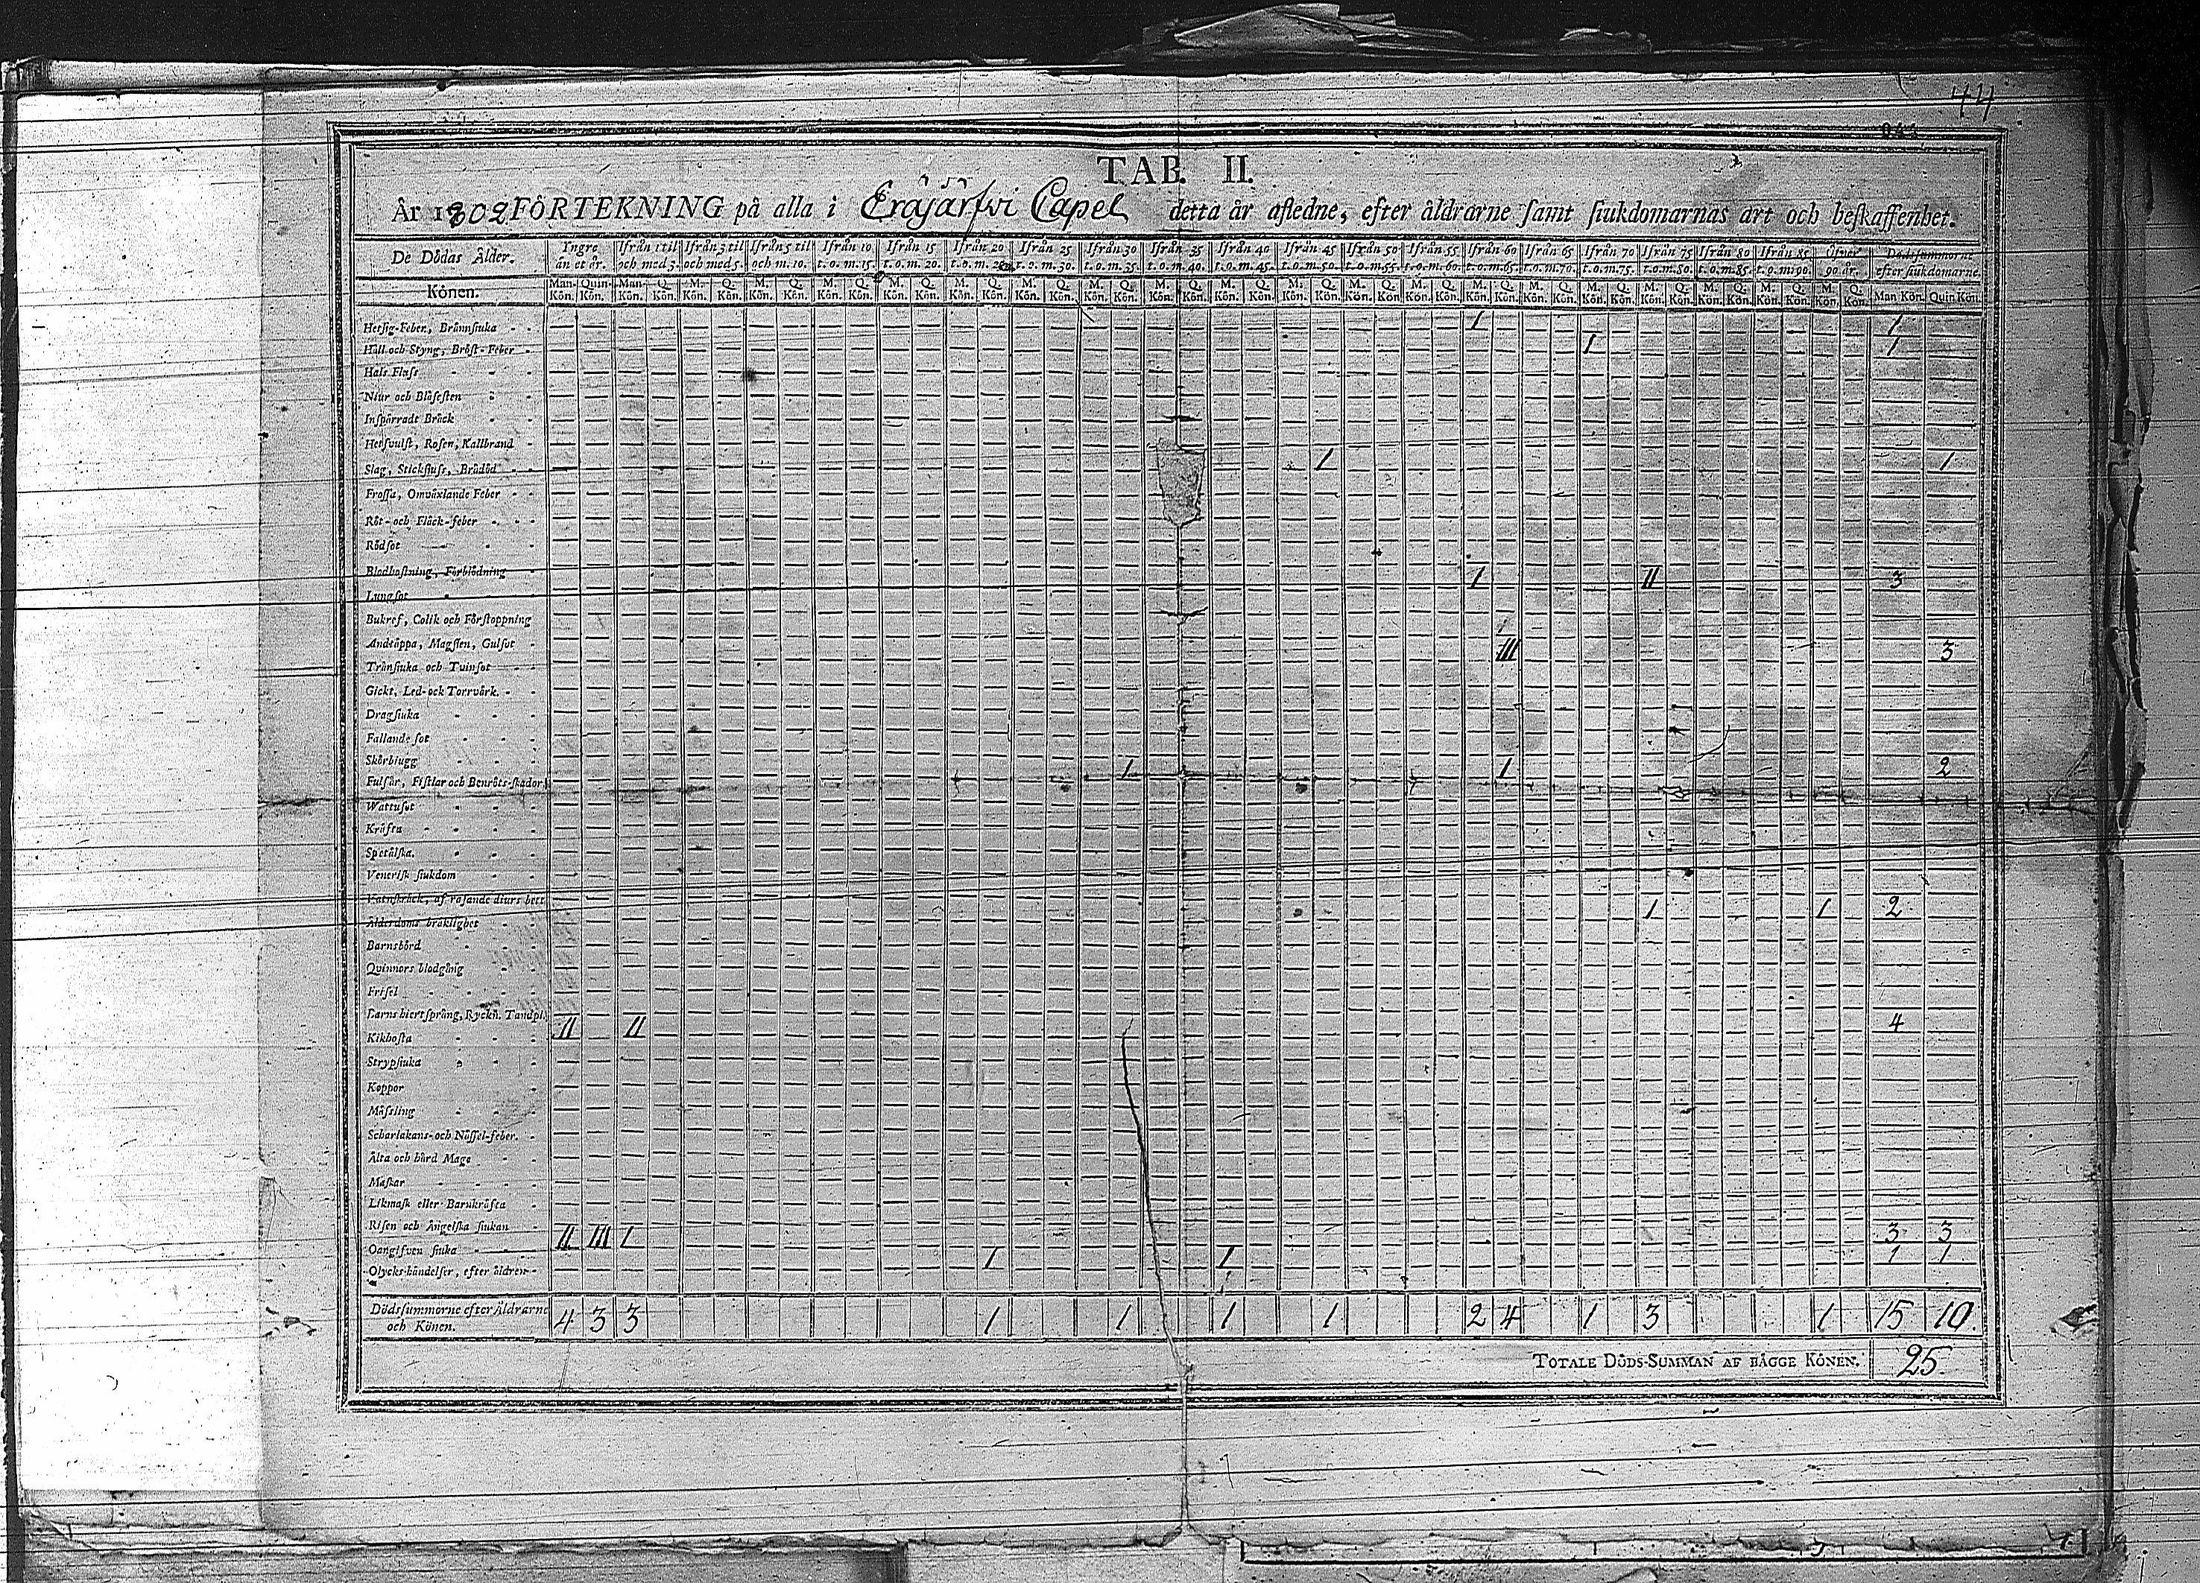 44
TAB. II.
År 1802 FÖRTEKNING på alla i Eräjärfvi Capel detta år afledne, efter åldrarne samt siukdomarnas art och beskaffenhet.
De Dödas Ålder. Yngre än et år. Ifrån 1 til och med 3. Ifrån 3 til och med 5. Ifrån 5 til och m. 10. Ifrån 10 t.o.m. 15. Ifrån 15 t.o.m. 20. Ifrån 20 t.o.m. 25. Ifrån 25 t.o.m. 30. Ifrån 30 t.o.m. 35. Ifrån 35 t.o.m. 40. Ifrån 40 t.o.m. 45. Ifrån 45 t.o.m. 50. Ifrån 50 t.o.m. 55. Ifrån 55 t.o.m. 60. Ifrån 60 t.o.m. 65. Ifrån 65 t.o.m. 70. Ifrån 70 t.o.m. 75. Ifrån 75 t.o.m. 80. Ifrån 80 t.o.m. 85. Ifrån 85 t.o.m. 90. Öfver 90 år. Dödssummorne efter siukdomarne.
Könen. Man-Kön. Quin-Kön. Man-Kön. Q. Kön. M. Kön. Q. Kön. M. Kön. Q. Kön. M. Kön. Q. Kön. M. Kön. Q. Kön. M. Kön. Q. Kön. M. Kön. Q. Kön. M. Kön. Q. Kön. M. Kön. Q. Kön. M. Kön. Q. Kön. M. Kön. Q. Kön. M. Kön. Q. Kön. M. Kön. Q. Kön. M. Kön. Q. Kön. M. Kön. Q. Kön. M. Kön. Q. Kön. M. Kön. Q. Kön. M. Kön. Q. Kön. M. Kön. Q. Kön. M. Kön. Q. Kön. Man Kön. Quin Kön.
Hetsig-Feber, Brännsiuka 1 1
Håll och Styng, Bröst-Feber 1 1
Hals Fluss
Niur och Blåsesten
Inspärradt Bråck
Hetsvulst, Rosen, Kallbrand
Slag, Stickfluss, Brådöd 1 1
Frossa, Omväxlande Feber
Röt- och Fläck-feber
Rödsot
Blodhostning, Förblödning
Lungsot 1 II 3
Bukref, Colik och Förstoppning
Andtäppa, Magsten, Gulsot III 3
Trånsiuka och Tvinsot
Gickt, Led- och Torrvärk.
Dragsiuka
Fallande sot
Skörbiugg
Fulsår, Fistlar och Benröts-skador 1 1 2
Wattusot
Kräfta
Spetälska.
Venerisk siukdom
Vatnskräck, af rasande diurs bett
Ålderdoms bräklighet 1 1 2
Barnsbörd
Quinnors blodgång
Frisel
Barns hiertsprång, Ryckn. Tandpl.
Kikhosta II II 4
Strypsiuka
Koppor
Mässling
Scharlakans- och Nässel-feber.
Älta och hård Mage
Maskar
Likmask eller Barnkräfta
Risen och Ängelska siukan
Oangifven siuka II III 1 3 3
Olycks-händelser, efter åldren 1 1 1 1
Dödssummorne efter Åldrarne och Könen. 4 3 3 1 1 1 1 2 4 1 3 1 15 10.
TOTALE DÖDS-SUMMAN AF BÄGGE KÖNEN. 25.